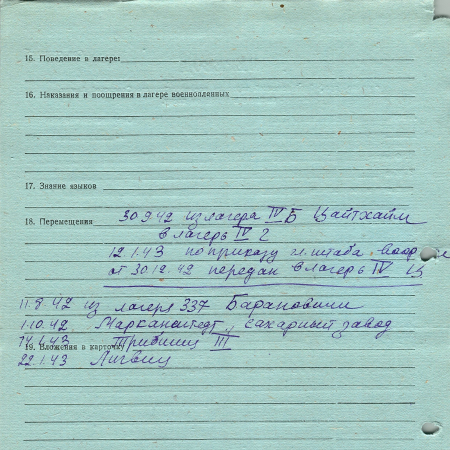 15. Поведение в лагере:
16. Наказания и поощрения в лагере военнопленных
17. Знание языков
18. Перемещения 30.9.42 из лагера IV Б Цайтхайм
в лагерь IV Г
12.1.43 по приказу гл. штаба
от 30.12.42 передан в лагерь IV Ц
11.8.42 из лагеря 337 Барановичи
1.10.42. Маркранштедт, сахарный завод
19. Вложения в карточку Требниц III
22.1.43